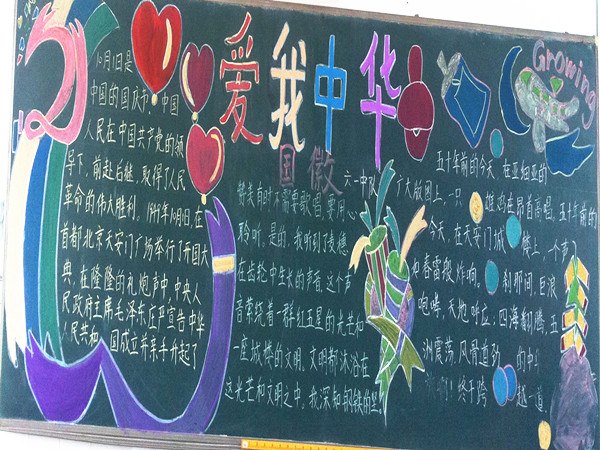 爱我中华
Growing
10月1日是
中国的国庆节,中国
人民在中国共产党的领
导下,前赴后继,取得了人民
革命的伟大胜利。1949年10月1日,在
首都北京天安门广场举行了开国大
典,在隆隆的礼炮声中,中央人
民政府主席毛泽东庄严宣告中华
人民共和 国成立并亲手升起了
国徽
六一中队
赞美有时不需要歌唱,要用
聆听。是的,我听到了麦穗
在齿轮中生长的声音,这个声
音萦绕着一群红五星的光芒和
一座城楼的文明,文明都沐浴在
这光芒和文明之中,我深知钢铁的坚
五十年前的今天,在亚细亚的
广大版图上,一只 雄鸡在昂首高唱,五十年前的
今天,在天安门城 楼上,一个声
如春雷般炸响, 刹那间,巨浪
咆哮,天地呼应,四海翻腾,五
洲震荡,风骨遒劲 的中
终于跨 越一道